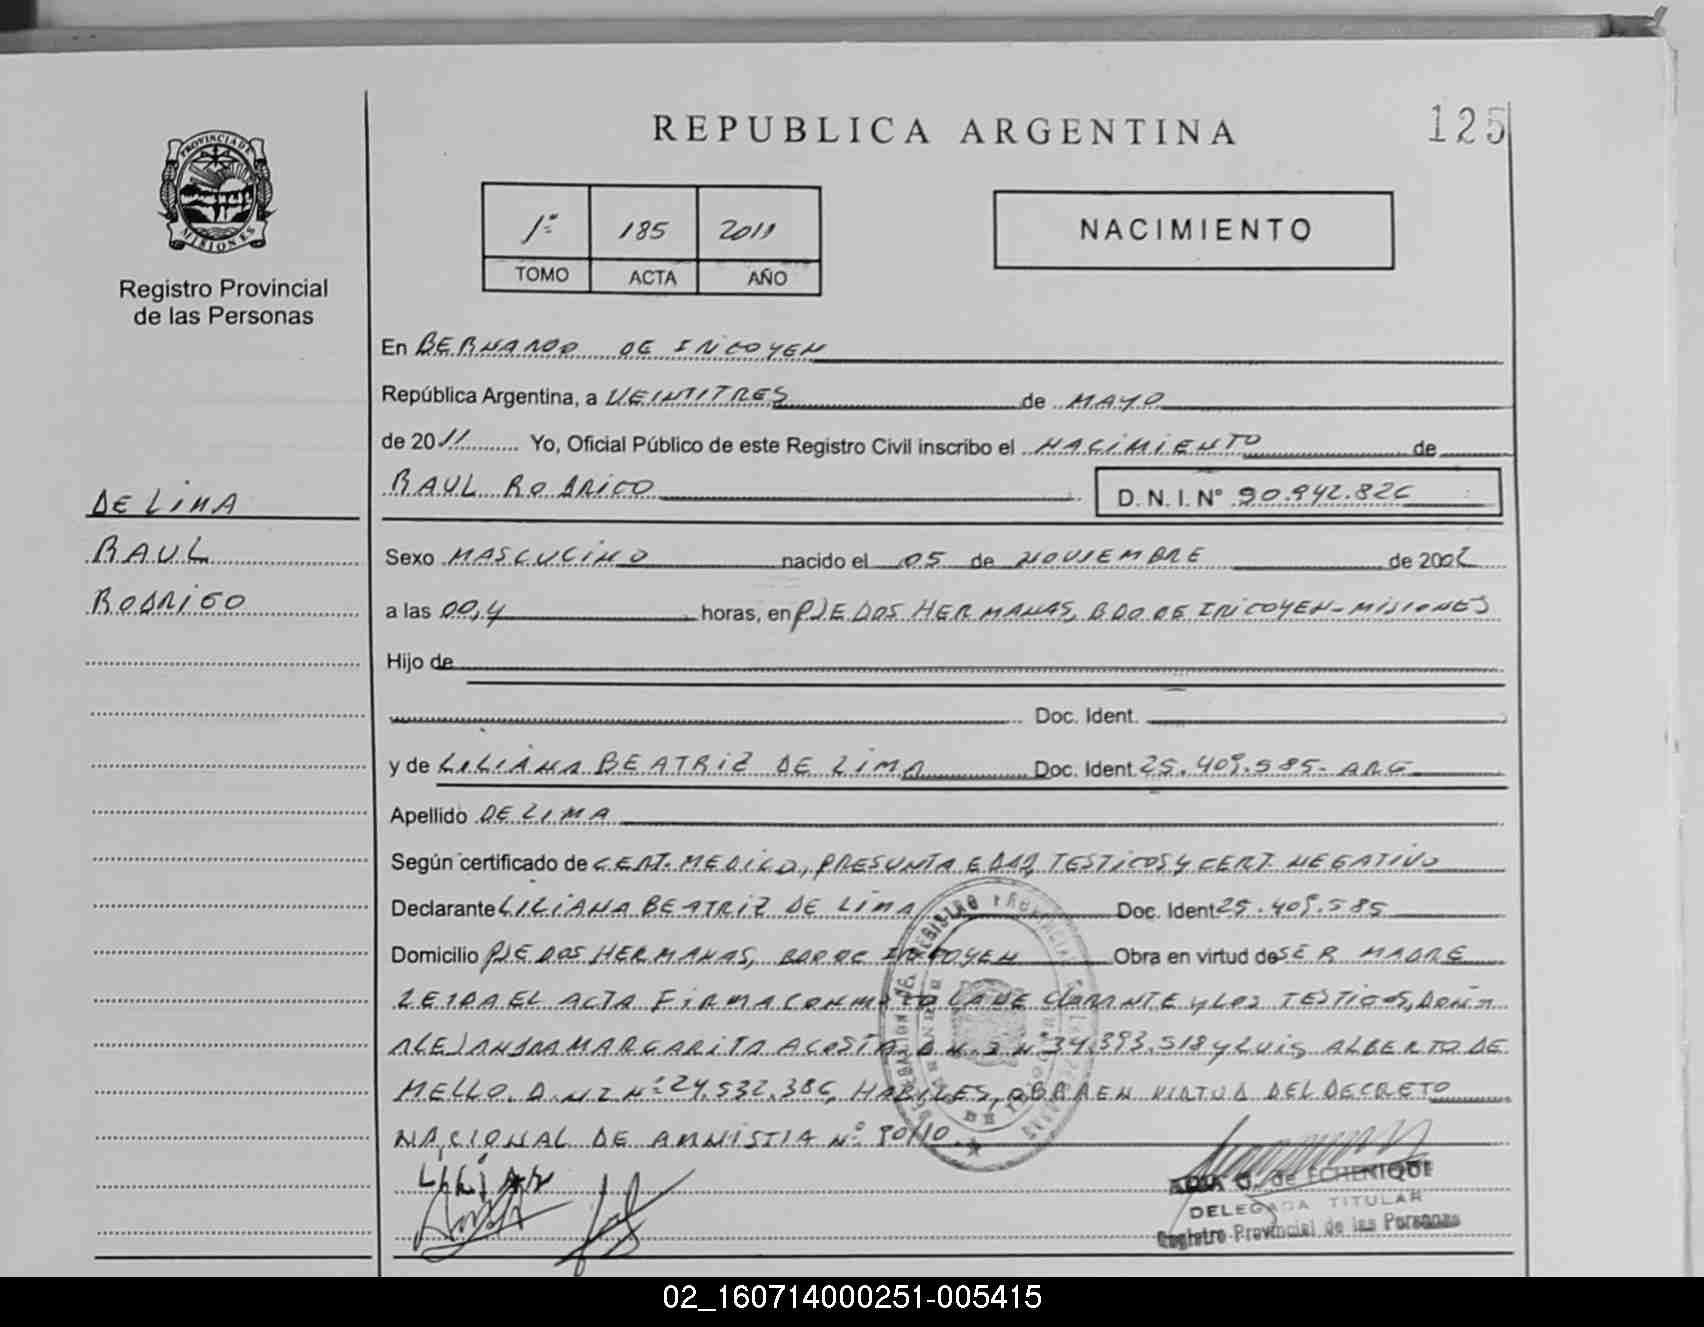 REPUBLICA ARGENTINA
125
PROVINCIA DE
MISIONES
Registro Provincial
de las Personas
1º 185 2011
TOMO ACTA AÑO
NACIMIENTO
En BERNARDO DE IRIGOYEN
República Argentina, a VEINTITRES de MAYO
de 2011 Yo, Oficial Público de este Registro Civil inscribo el NACIMIENTO de
RAUL RODRIGO D. N. I. Nº 90.942.826
DE LIMA
RAUL
RODRIGO
Sexo MASCULINO nacido el 05 de NOVIEMBRE de 2002
a las 00,4 horas, en PJE DOS HERMANAS, BDO DE IRIGOYEN-MISIONES
Hijo de
Doc. Ident.
y de LILIANA BEATRIZ DE LIMA Doc. Ident. 25.409.585- ARG
Apellido DE LIMA
Según certificado de CERT. MEDICO, PRESUNTA EDAD, TESTIGOS Y CERT. NEGATIVO
Declarante LILIANA BEATRIZ DE LIMA Doc. Ident 25.409.585
Domicilio PJE DOS HERMANAS, BDO DE IRIGOYEN Obra en virtud de SER MADRE
LEIDA EL ACTA FIRMA CONMIGO LA DECLARANTE y LOS TESTIGOS, DOÑA
ALEJANDRA MARGARITA ACOSTA D.N.I Nº 34.393.518 y LUIS ALBERTO DE
MELLO. D.N.I Nº 24.532.386, HABILES, OBRA EN VIRTUD DEL DECRETO
NACIONAL DE AMNISTIA Nº 90/10.
LILIAN
G. de ECHENIQUE
DELEGADA TITULAR
Registro Provincial de las Personas
02_160714000251-005415